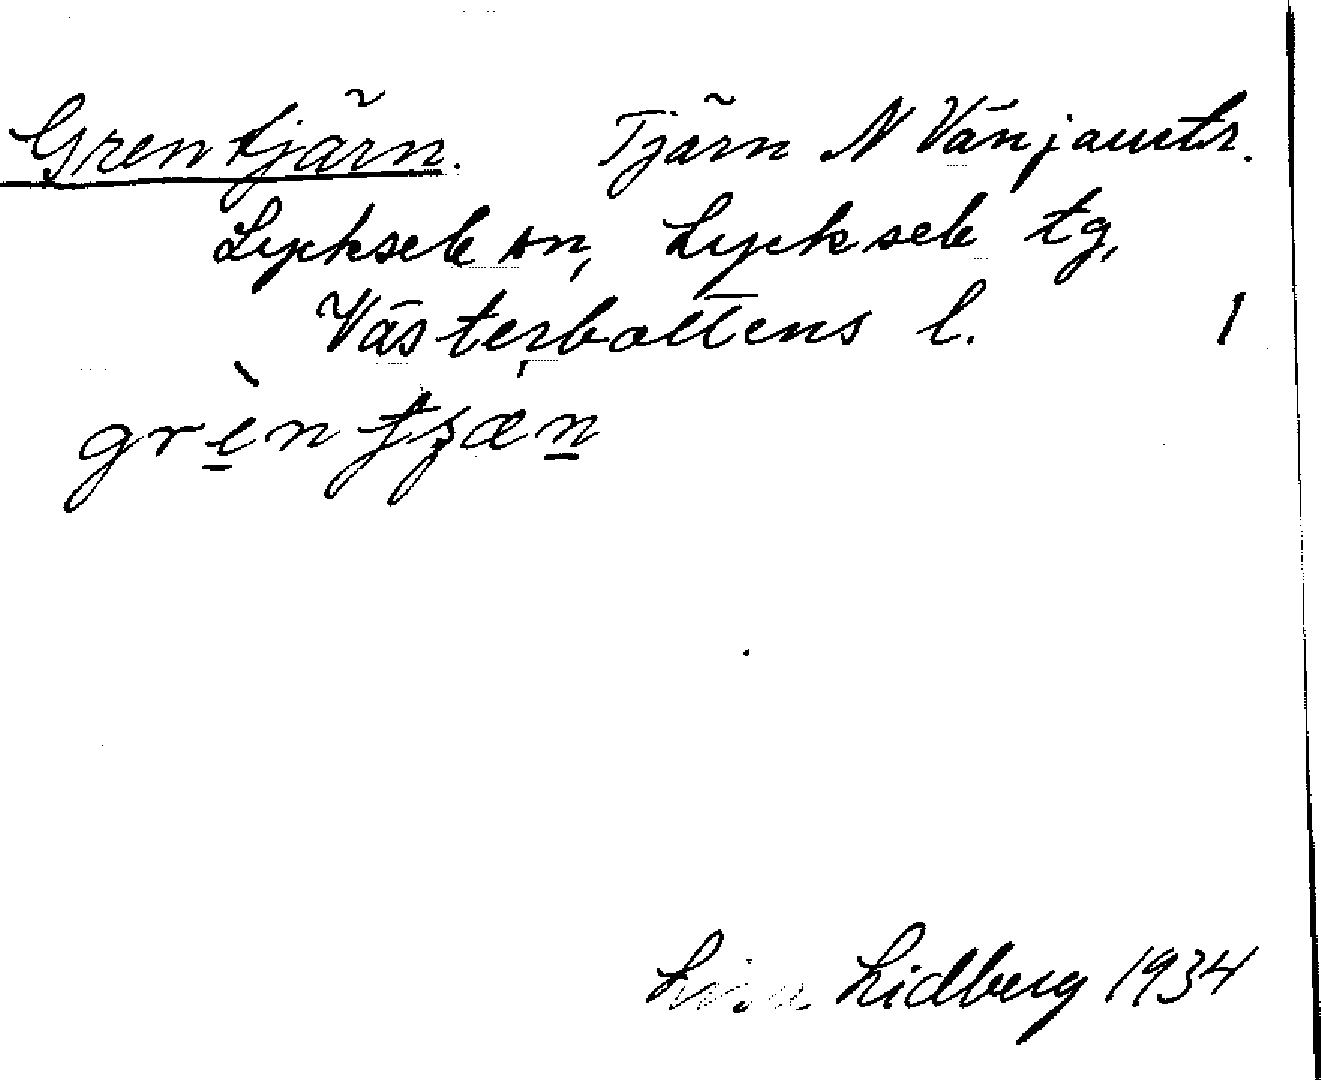 Grentjärn. Tjärn N Vänjaurtr.
Lycksele sn, Lycksele tg,
Västerbottens l. 1
grèntʒæn
Lisa Lidberg 1934